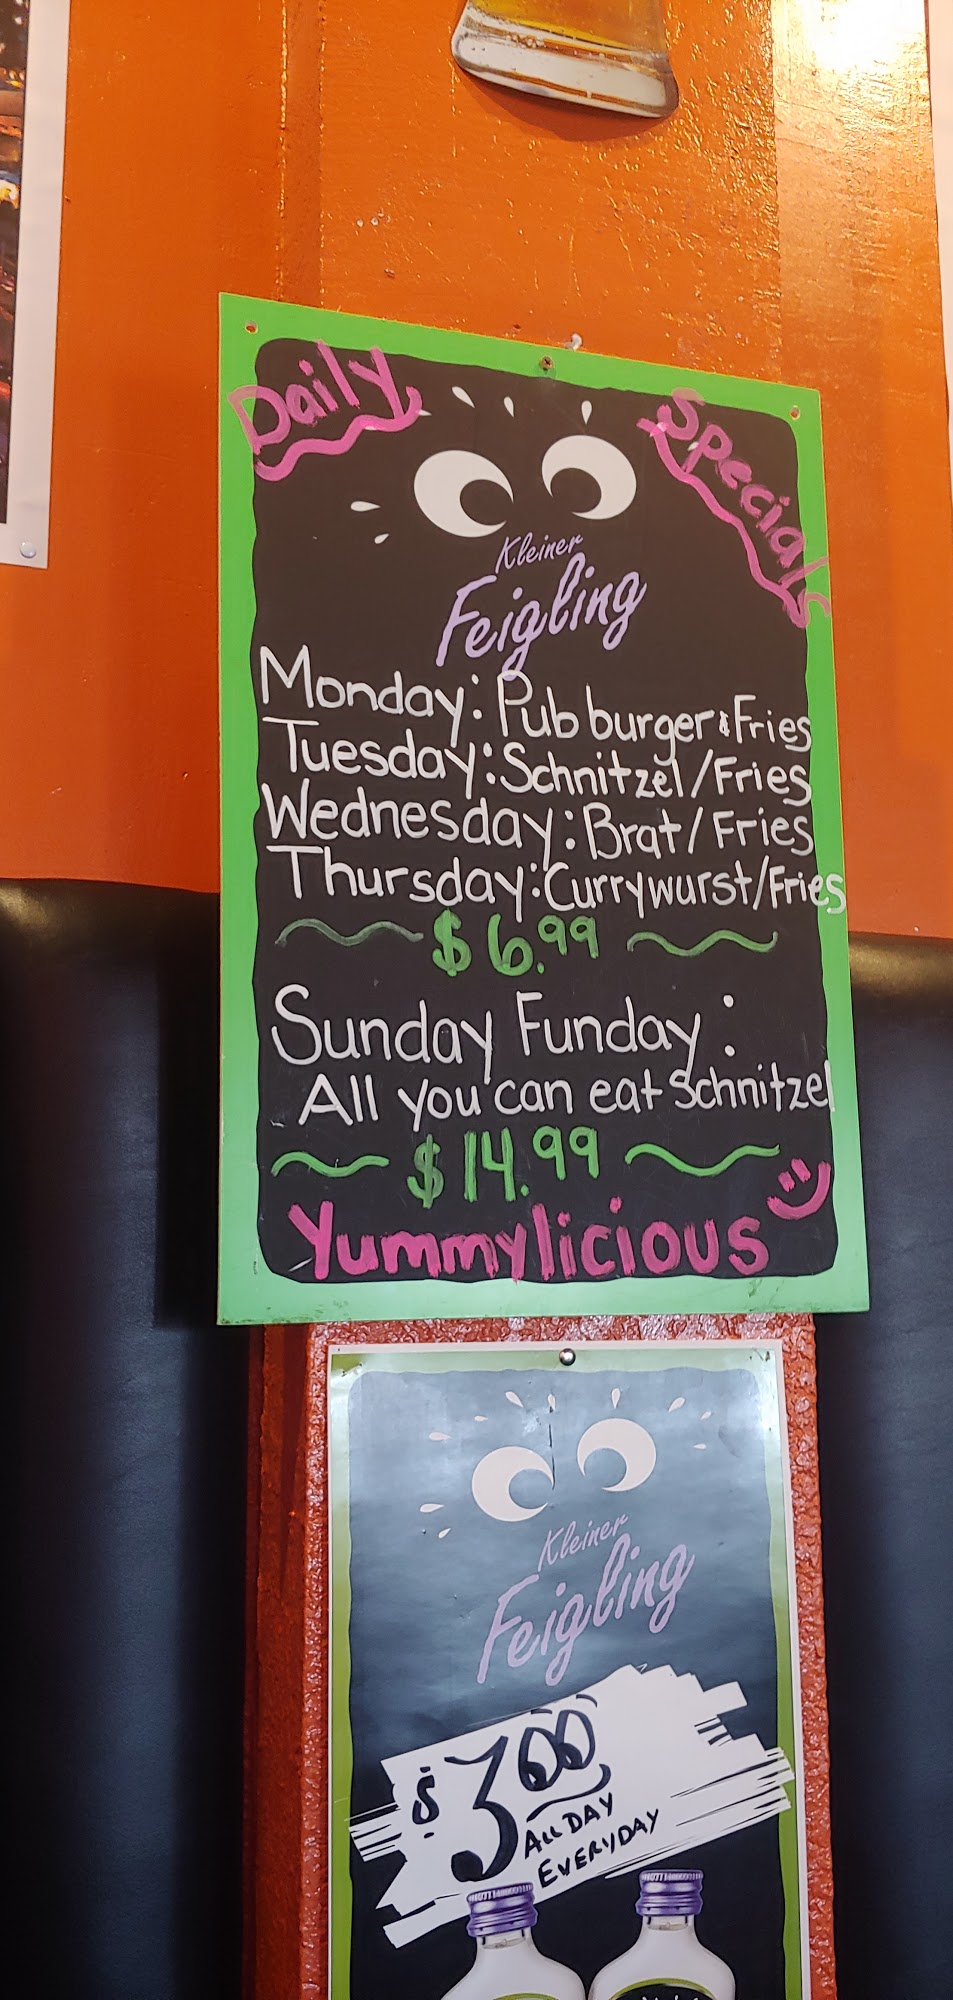 Daily
Specials
Kleiner
Feigling
Monday: Pub burger & Fries
Tuesday: Schnitzel/Fries
Wednesday: Brat/Fries
Thursday: Currywurst/Fries
$6.99
Sunday Funday:
All you can eat Schnitzel
$14.99
Yummylicious
Kleiner
Feigling
$3.00
ALL DAY
EVERYDAY